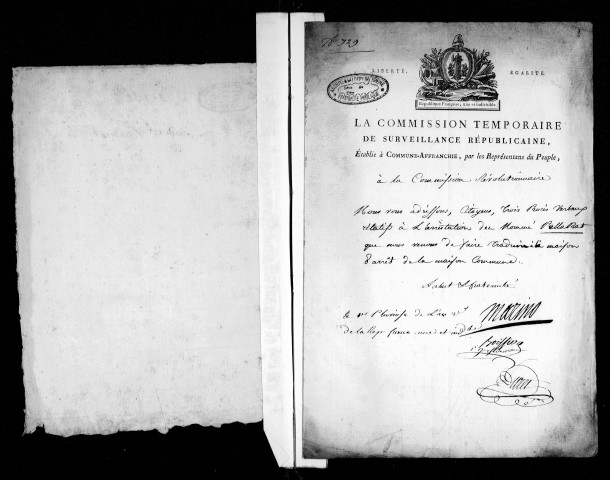 N.° 729
LIBERTÉ. ÉGALITÉ.
République Française, une et indivisible.
LA COMMISSION TEMPORAIRE
DE SURVEILLANCE RÉPUBLICAINE,
Établie à COMMUNE-AFFRANCHIE, par les Représentans du Peuple,
à la Commission Révolutionnaire
Nous vous adressons, Citoyens, Trois Procès Verbaux
relatifs à L'arrestation du Nommé PelleRat
que nous venons de faire traduire à la maison
d'arrêt de la maison Commune.
Salut & fraternité
le Pluviose de L'an
de la Rep. franc. une et ind.
Marino